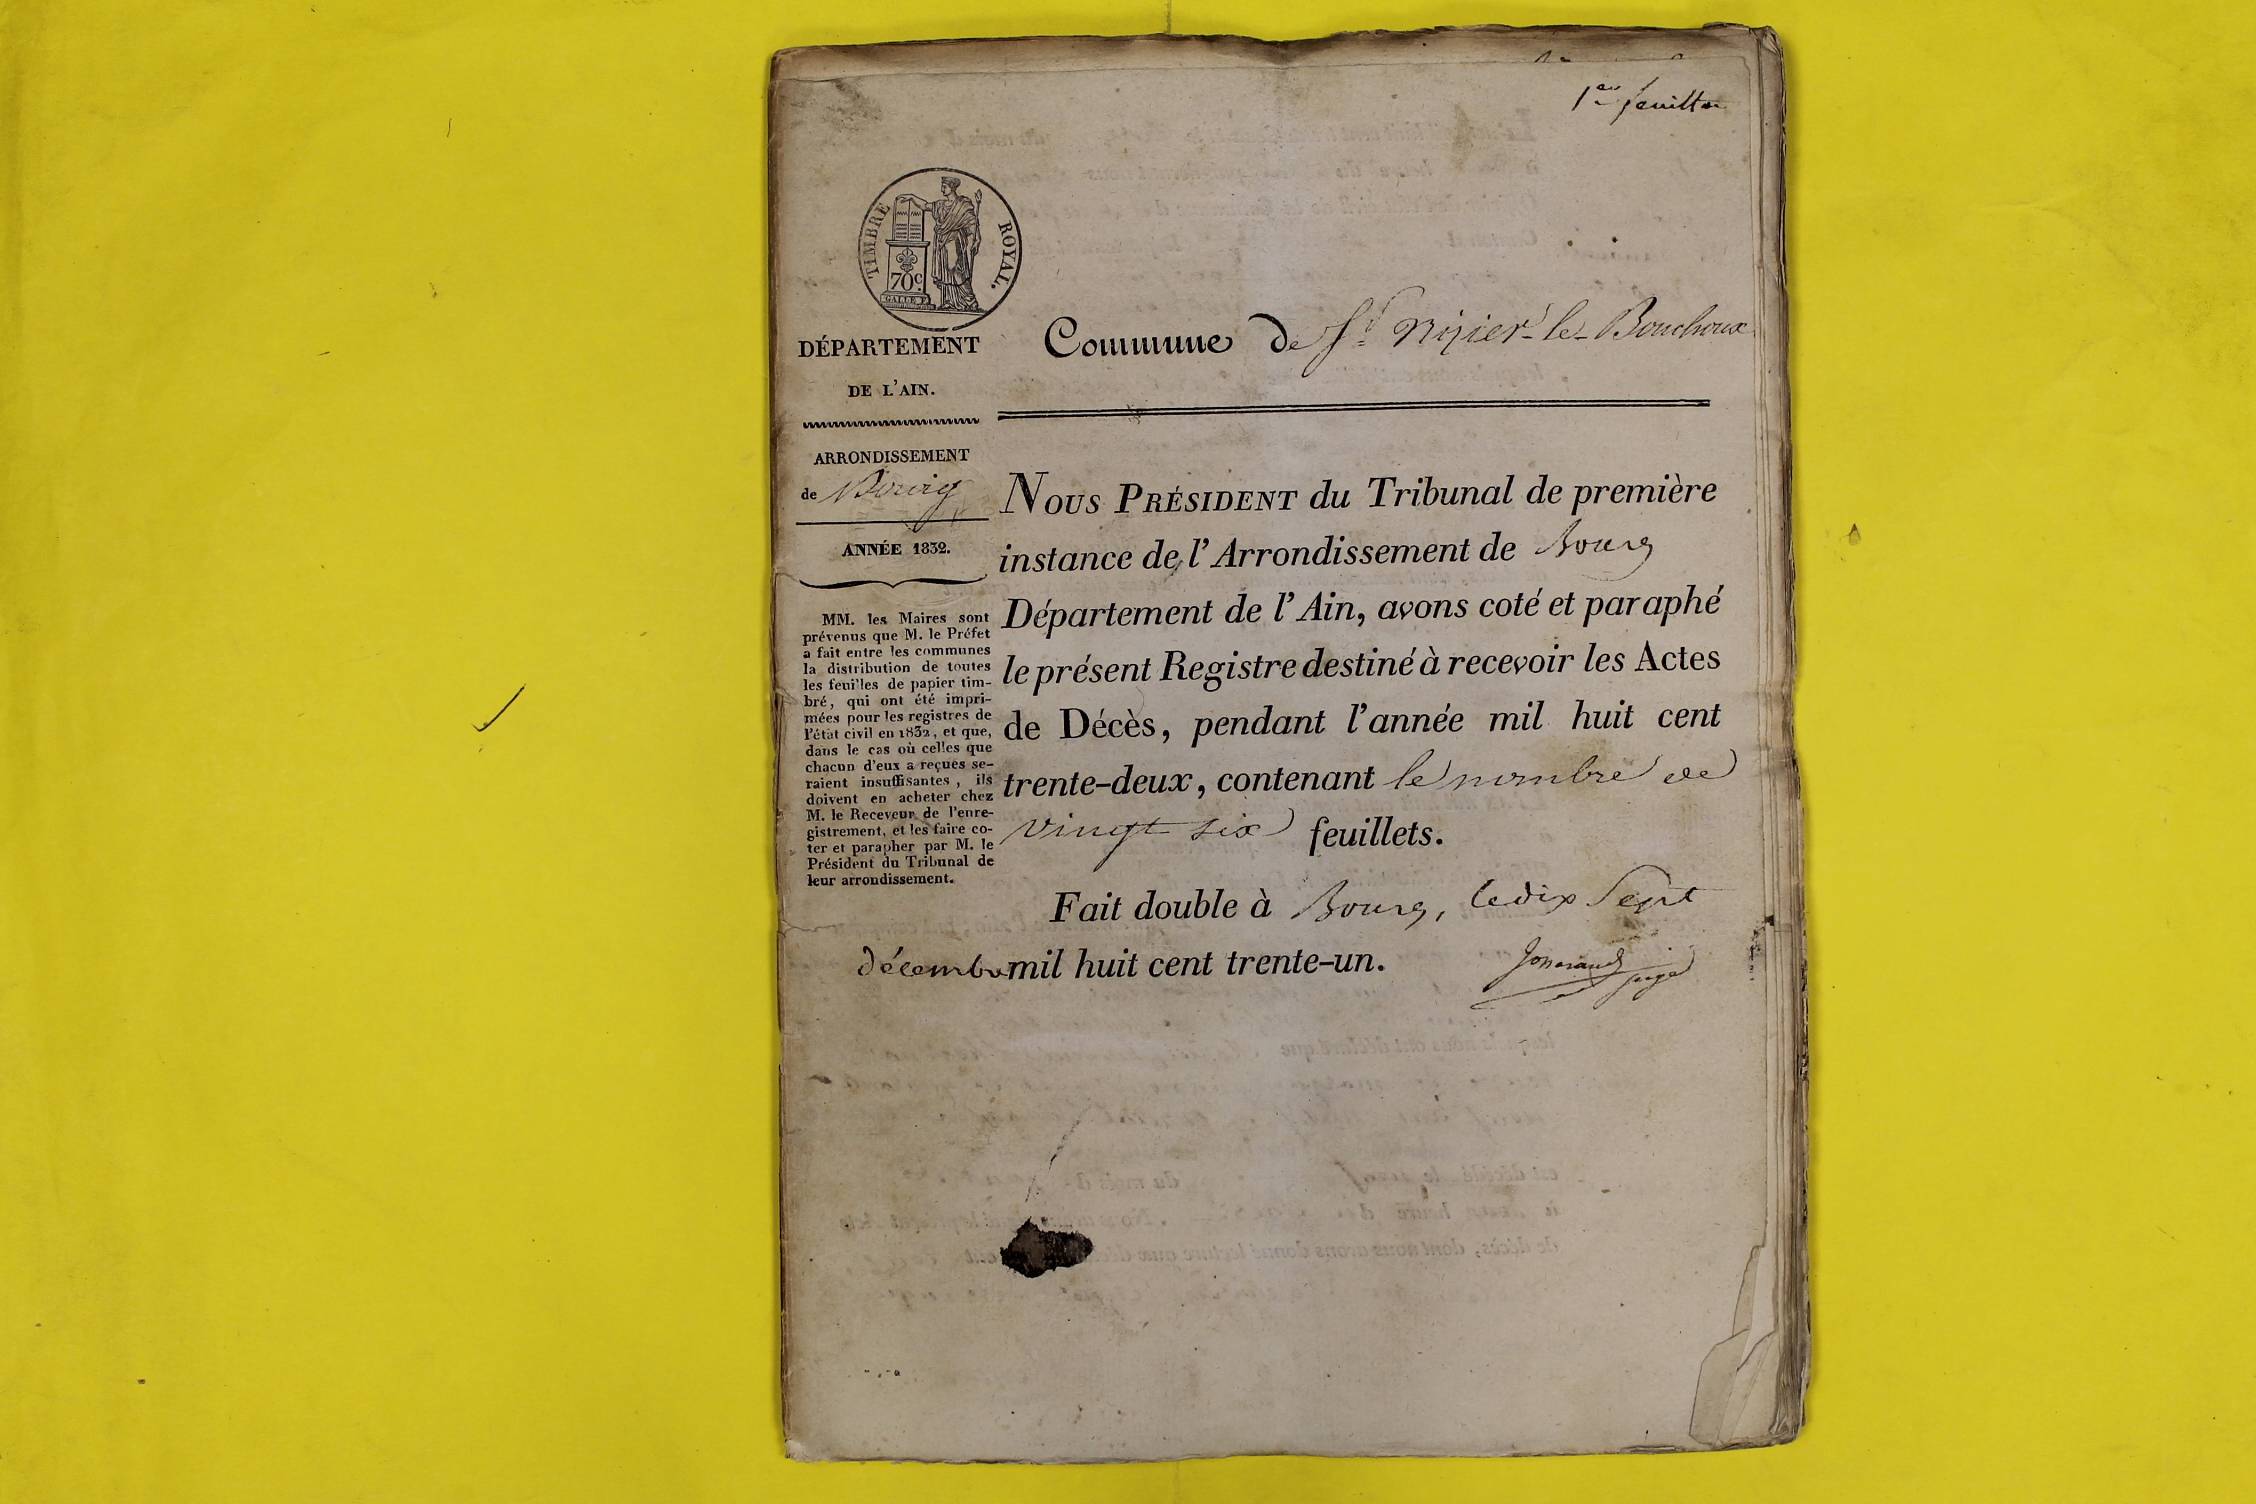 1er feuillet
TIMBRE ROYAL.
70c.
GALLE F.
DÉPARTEMENT
DE L'AIN.
Commune De St. Nizier-le-Bouchoux
ARRONDISSEMENT
de Bourg
ANNÉE 1832.
MM. les Maires sont
prévenus que M. le Préfet
a fait entre les communes
la distribution de toutes
les feuilles de papier tim-
bré, qui ont été impri-
mées pour les registres de
l'état civil en 1832, et que,
dans le cas où celles que
chacun d'eux a reçues se-
raient insuffisantes, ils
doivent en acheter chez
M. le Receveur de l'enre-
gistrement, et les faire co-
ter et parapher par M. le
Président du Tribunal de
leur arrondissement.
NOUS PRÉSIDENT du Tribunal de première
instance de l'Arrondissement de Bourg
Département de l'Ain, avons coté et paraphé
le présent Registre destiné à recevoir les Actes
de Décès, pendant l'année mil huit cent
trente-deux, contenant le nombre de
vingt six feuillets.
Fait double à Bourg, le dix Sept
décembre mil huit cent trente-un.
juge